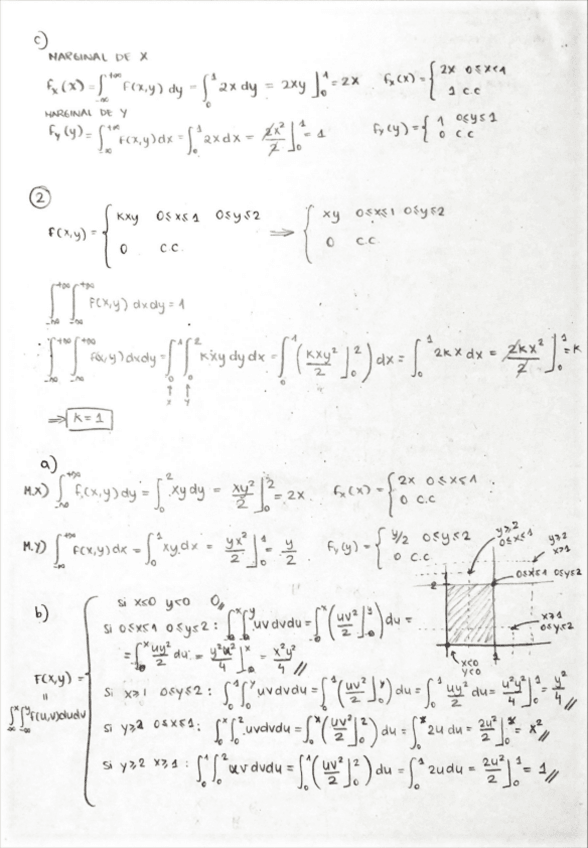 c)
MARGINAL DE X
fx(x) = ∫_{-∞}^{+∞} f(x,y) dy = ∫_0^1 2x dy = 2xy ]_0^1 = 2x    fx(x) = { 2x 0≤x≤1
1 c.c
MARGINAL DE Y
fy(y) = ∫_{-∞}^{+∞} f(x,y) dx = ∫_0^1 2x dx = 2x²/2 ]_0^1 = 1    fy(y) = { 1 0≤y≤1
0 c.c
②
f(x,y) = { kxy 0≤x≤1 0≤y≤2 ⇒ { xy 0≤x≤1 0≤y≤2
0 c.c    0 c.c.
∫_{-∞}^{+∞} ∫_{-∞}^{+∞} f(x,y) dxdy = 1
∫_{-∞}^{+∞} ∫_{-∞}^{+∞} f(x,y) dxdy = ∫_0^1 ∫_0^2 kxy dy dx = ∫_0^1 (kxy²/2 ]_0^2) dx = ∫_0^1 2kx dx = 2kx²/2 ]_0^1 = k
↑ ↑
x y
⇒ k=1
a)
M.X) ∫_{-∞}^{+∞} f(x,y) dy = ∫_0^2 xy dy = xy²/2 ]_0^2 = 2x    fx(x) = { 2x 0≤x≤1
0 c.c
M.Y) ∫_{-∞}^{+∞} f(x,y) dx = ∫_0^1 xy dx = yx²/2 ]_0^1 = y/2    fy(y) = { y/2 0≤y≤2
0 c.c
y≥2
0≤x≤1
y≥2
x≥1
0≤x≤1 0≤y≤2
2
x≥1
0≤y≤2
1
x<0
y<0
b)
F(x,y) = {
"
∫_{-∞}^x ∫_{-∞}^y f(u,v) dudv
si x≤0 y<0 0//
si 0≤x≤1 0≤y≤2 : ∫_0^x ∫_0^y uv dv du = ∫_0^x (uv²/2 ]_0^y) du =
= ∫_0^x uy²/2 du = y²u²/4 ]_0^x = x²y²/4 //
Si x≥1 0≤y≤2 : ∫_0^1 ∫_0^y uv dv du = ∫_0^1 (uv²/2 ]_0^y) du = ∫_0^1 uy²/2 du = u²y²/4 ]_0^1 = y²/4 //
si y≥2 0≤x≤1 : ∫_0^x ∫_0^2 uv dv du = ∫_0^x (uv²/2 ]_0^2) du = ∫_0^x 2u du = 2u²/2 ]_0^x = x² //
si y≥2 x≥1 : ∫_0^1 ∫_0^2 uv dv du = ∫_0^1 (uv²/2 ]_0^2) du = ∫_0^1 2u du = 2u²/2 ]_0^1 = 1 //